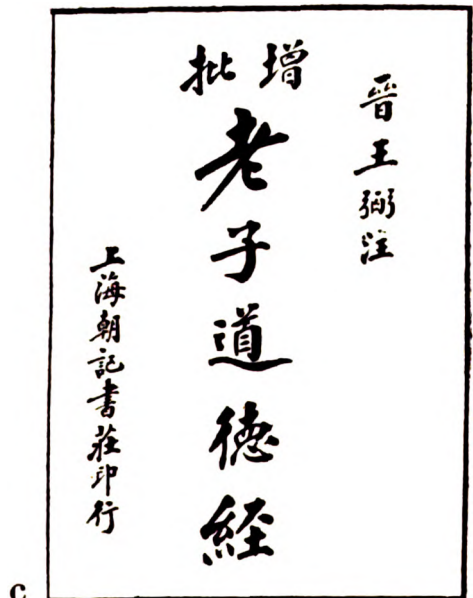 晉王弼注
增批
老子道德経
上海朝記書莊印行
c